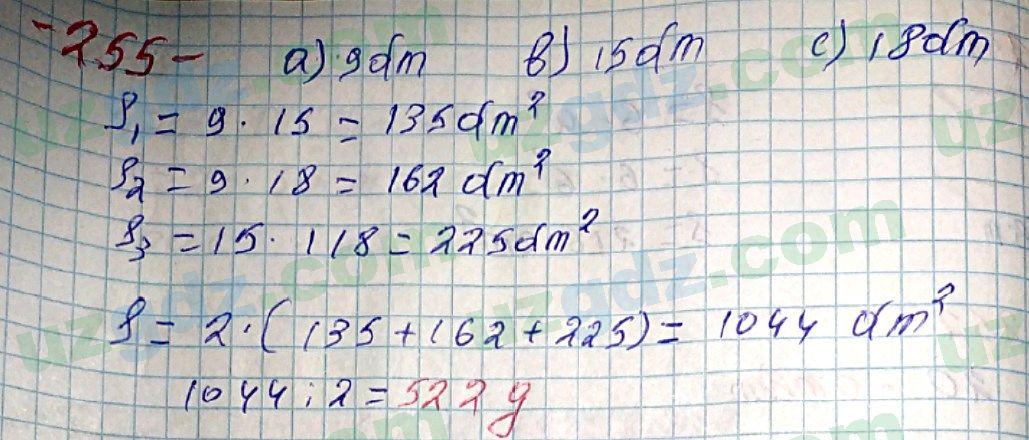 -255- a) 9dm b) 15dm c) 18dm
S₁ = 9 · 15 = 135dm²
S₂ = 9 · 18 = 162 dm²
S₃ = 15 · 118 = 225dm²
S = 2 · (135 + 162 + 225) = 1044 dm²
1044 : 2 = 522 g
uzgdz.com